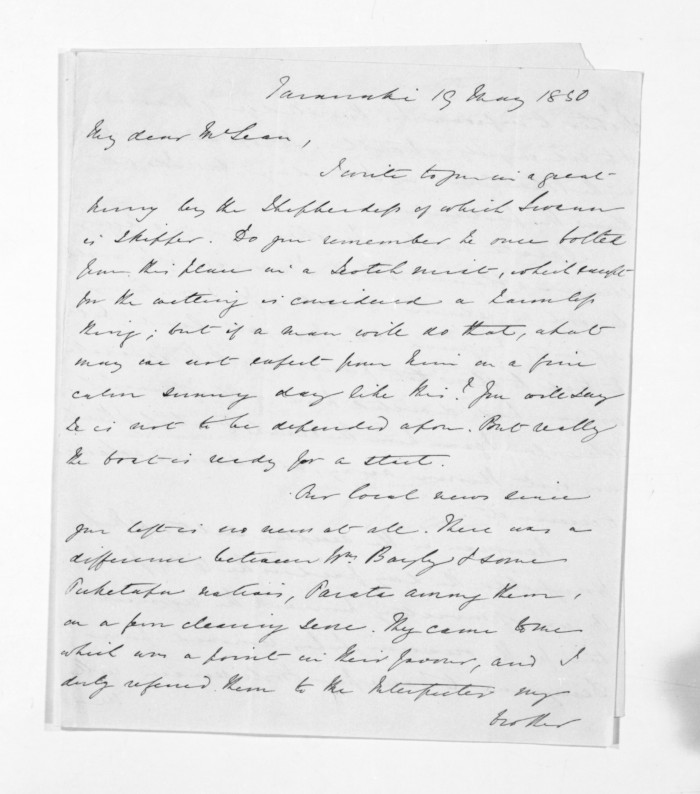 Taranaki 19 May 1850
My dear McLean,
I write to you in a great
hurry by the Shepherdess of which
is Skipper. Do you remember he once bolted
from this place in a Scotch mist, which except
for the wetting is considered a harmless
thing; but if a man will do that, what
may we not expect from him on a fine
calm sunny day like this? You will say
he is not to be depended upon. But really
the boat is ready for a start.
Our local news since
you left is no news at all. There was a
difference between Wm Bayly & some
Puketapu natives, Parata among them,
on a fern clearing score. They came to me
which was a point in their favour, and I
duly referred them to the Interpreter my
brother